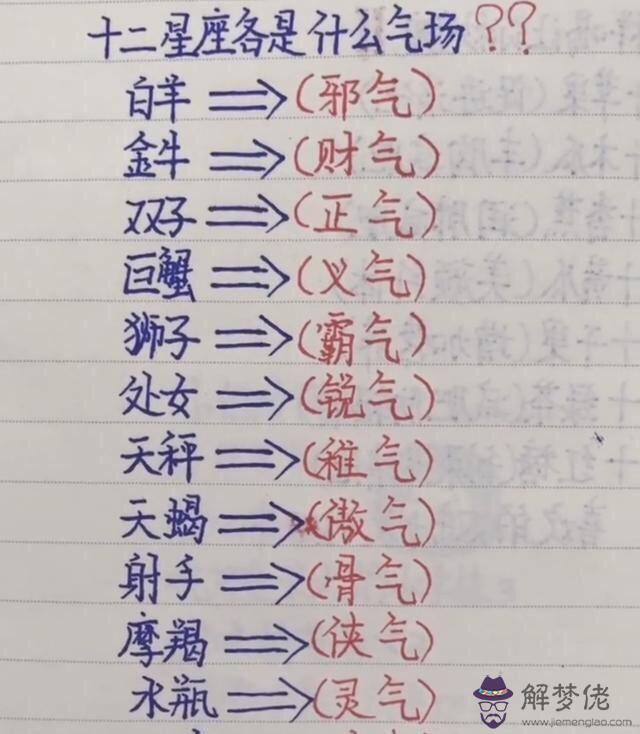 十二星座各是什么气场??
白羊⟹(邪气)
金牛⟹(财气)
双子⟹(正气)
巨蟹⟹(义气)
狮子⟹(霸气)
处女⟹(锐气)
天秤⟹(稚气)
天蝎⟹(傲气)
射手⟹(骨气)
摩羯⟹(侠气)
水瓶⟹(灵气)
解梦佬
www.jiemenglao.com